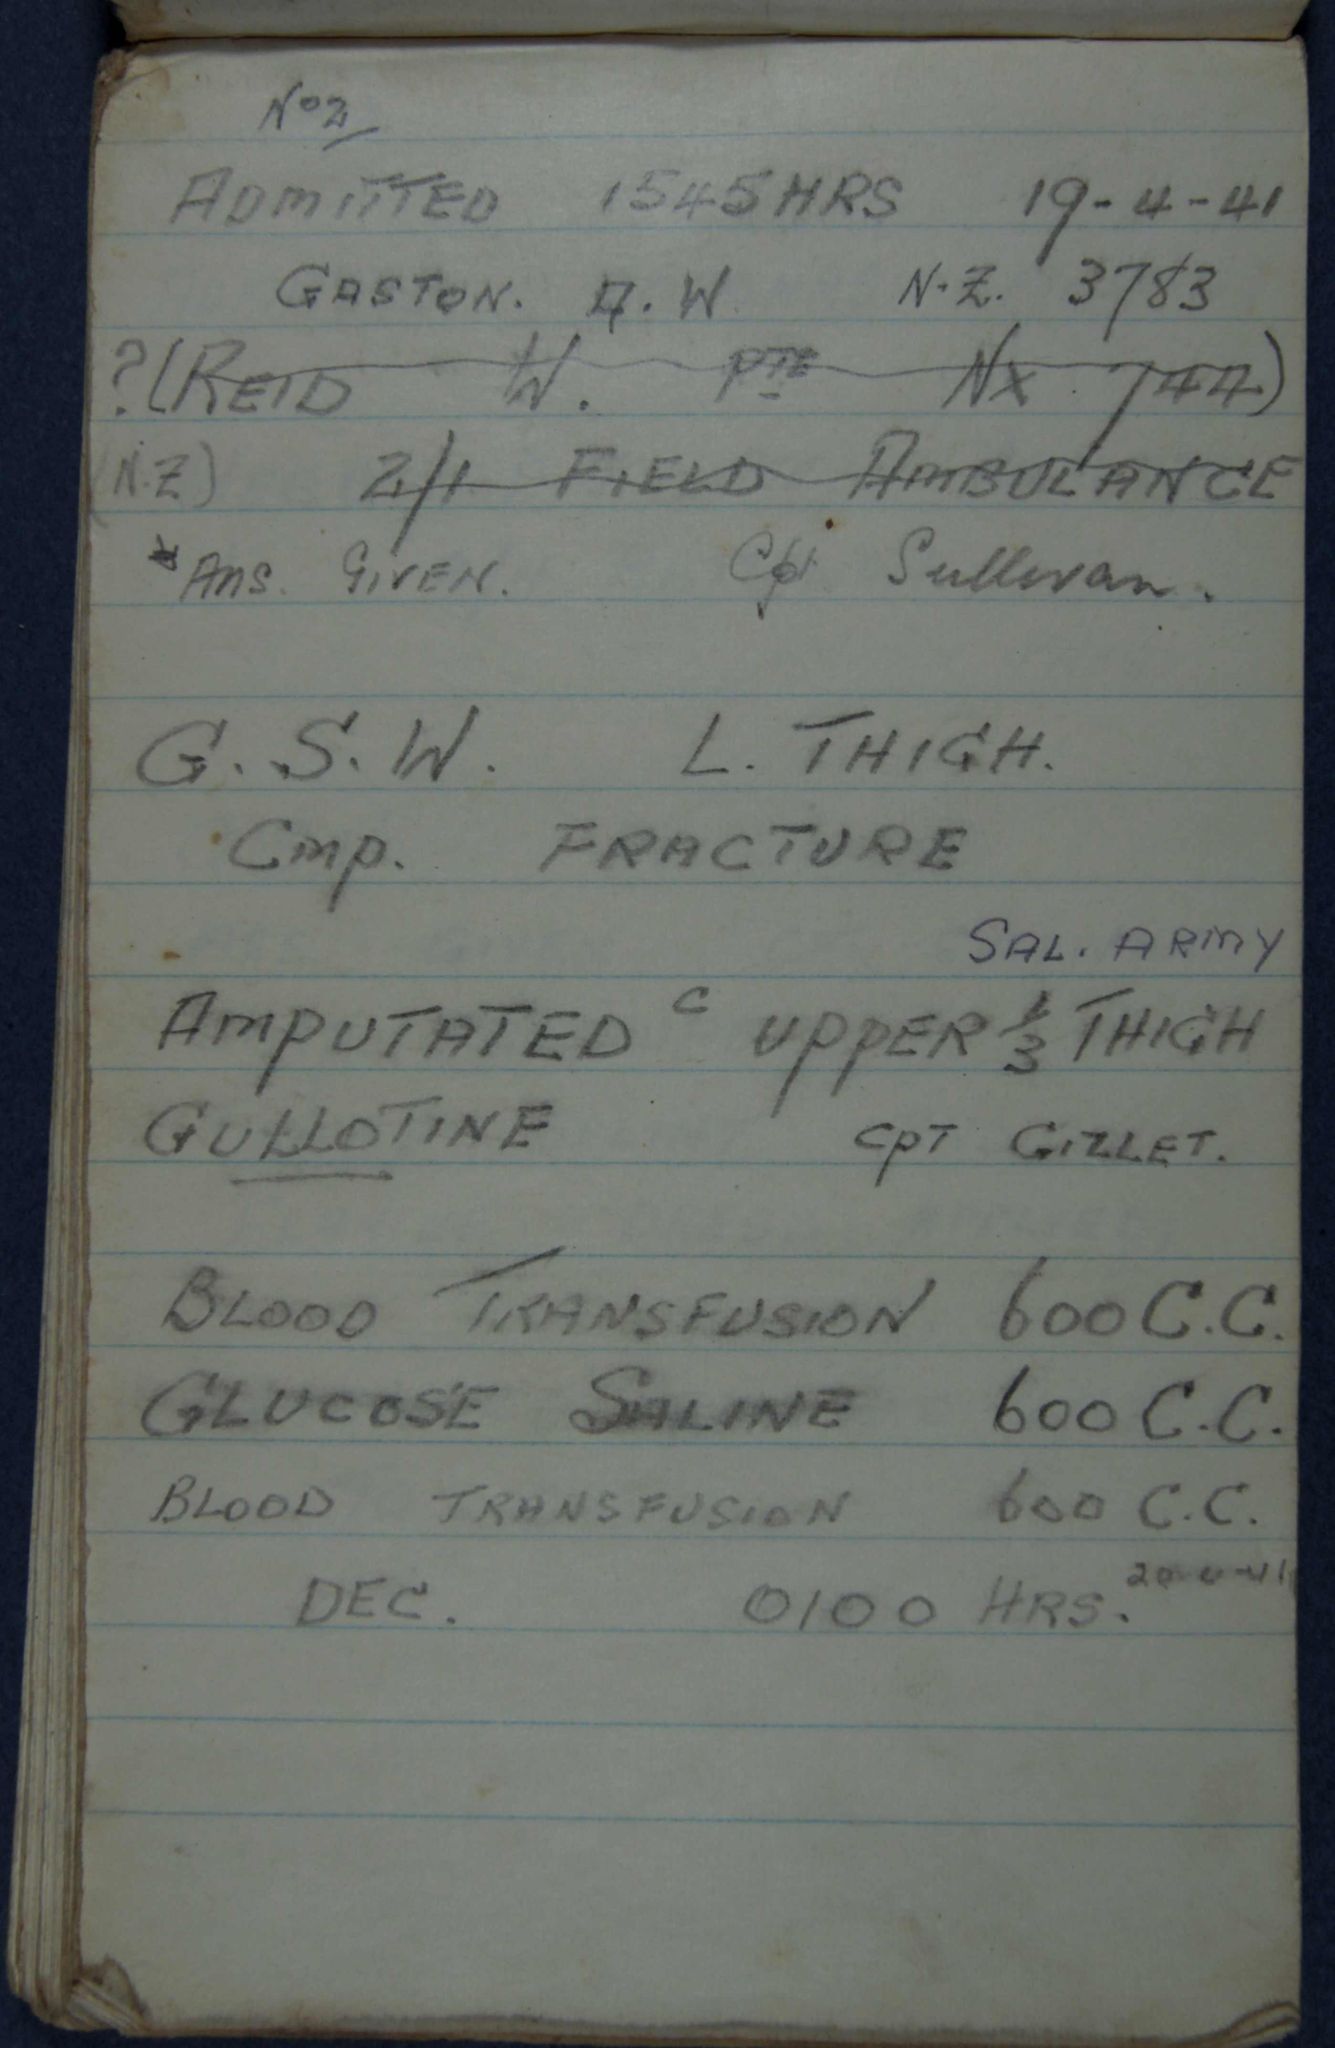 No 2
ADMITTED 1545 HRS 19-4-41
GASTON. A. W. N.Z. 3783
?(REID W. PTE NX 744)
(N.Z) 2/1 FIELD AMBULANCE
Ans. GIVEN. Cpl Sullivan.
G. S. W. L. THIGH.
Cmp. FRACTURE
SAL. ARMY
AMPUTATED c UPPER 1/3 THIGH
GULLOTINE CPT GILLET.
BLOOD TRANSFUSION 600 C.C.
GLUCOSE SALINE 600 C.C.
BLOOD TRANSFUSION 600 C.C.
DEC. 0100 HRS. 20-4-41